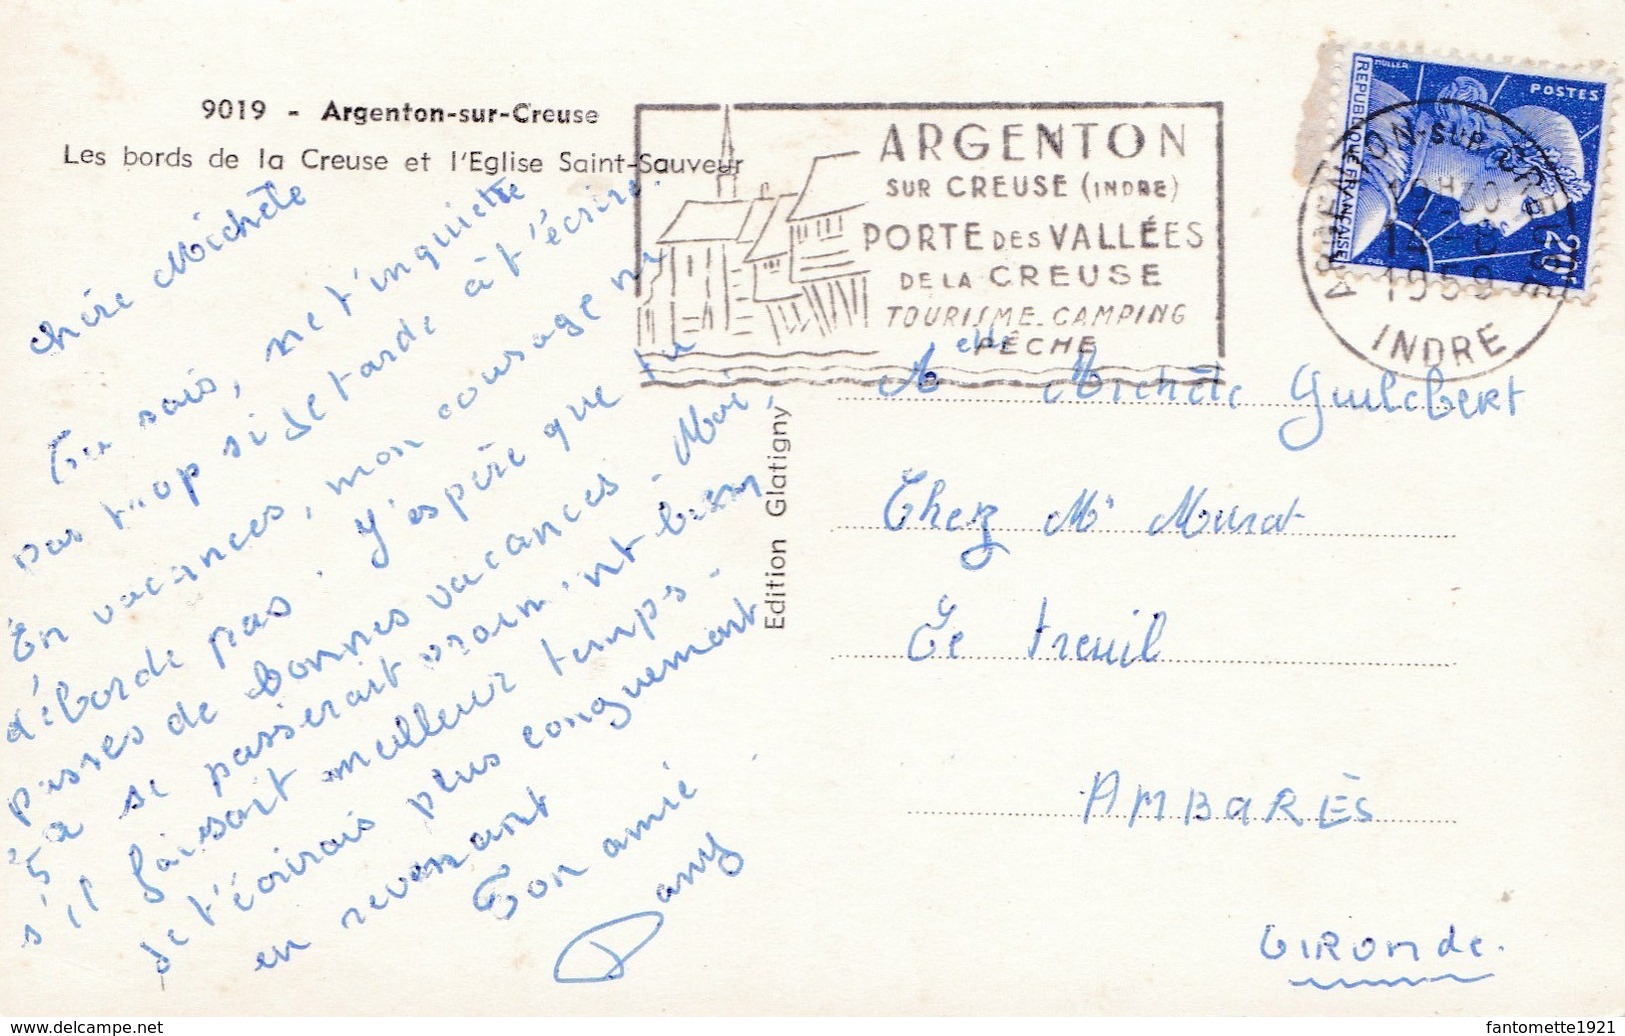 9019 - Argenton-sur-Creuse
Les bords de la Creuse et l'Eglise Saint-Sauveur
chère Michèle
Tu sais, ne t'inquiette
pas trop si je tarde à t'écrire.
En vacances, mon courage ne
déborde pas. J'espère que tu
passes de bonnes vacances - Moi,
ça se passerait vraiment bien
s'il faisait meilleur temps -
Je t'écrirais plus longuement
en revenant
Ton amie
Dany
Edition Glatigny
ARGENTON
SUR CREUSE (INDRE)
PORTE DES VALLÉES
DE LA CREUSE
TOURISME. CAMPING
PÊCHE
RÉPUBLIQUE FRANÇAISE
MULLER
POSTES
20F
PIEL
ARGENTON-SUR-CREUSE
1959
INDRE
Melle Michèle Guilcbert
Chez Mr Murat
Le treuil
AMBARÈS
GIRONde.
fantomette1921